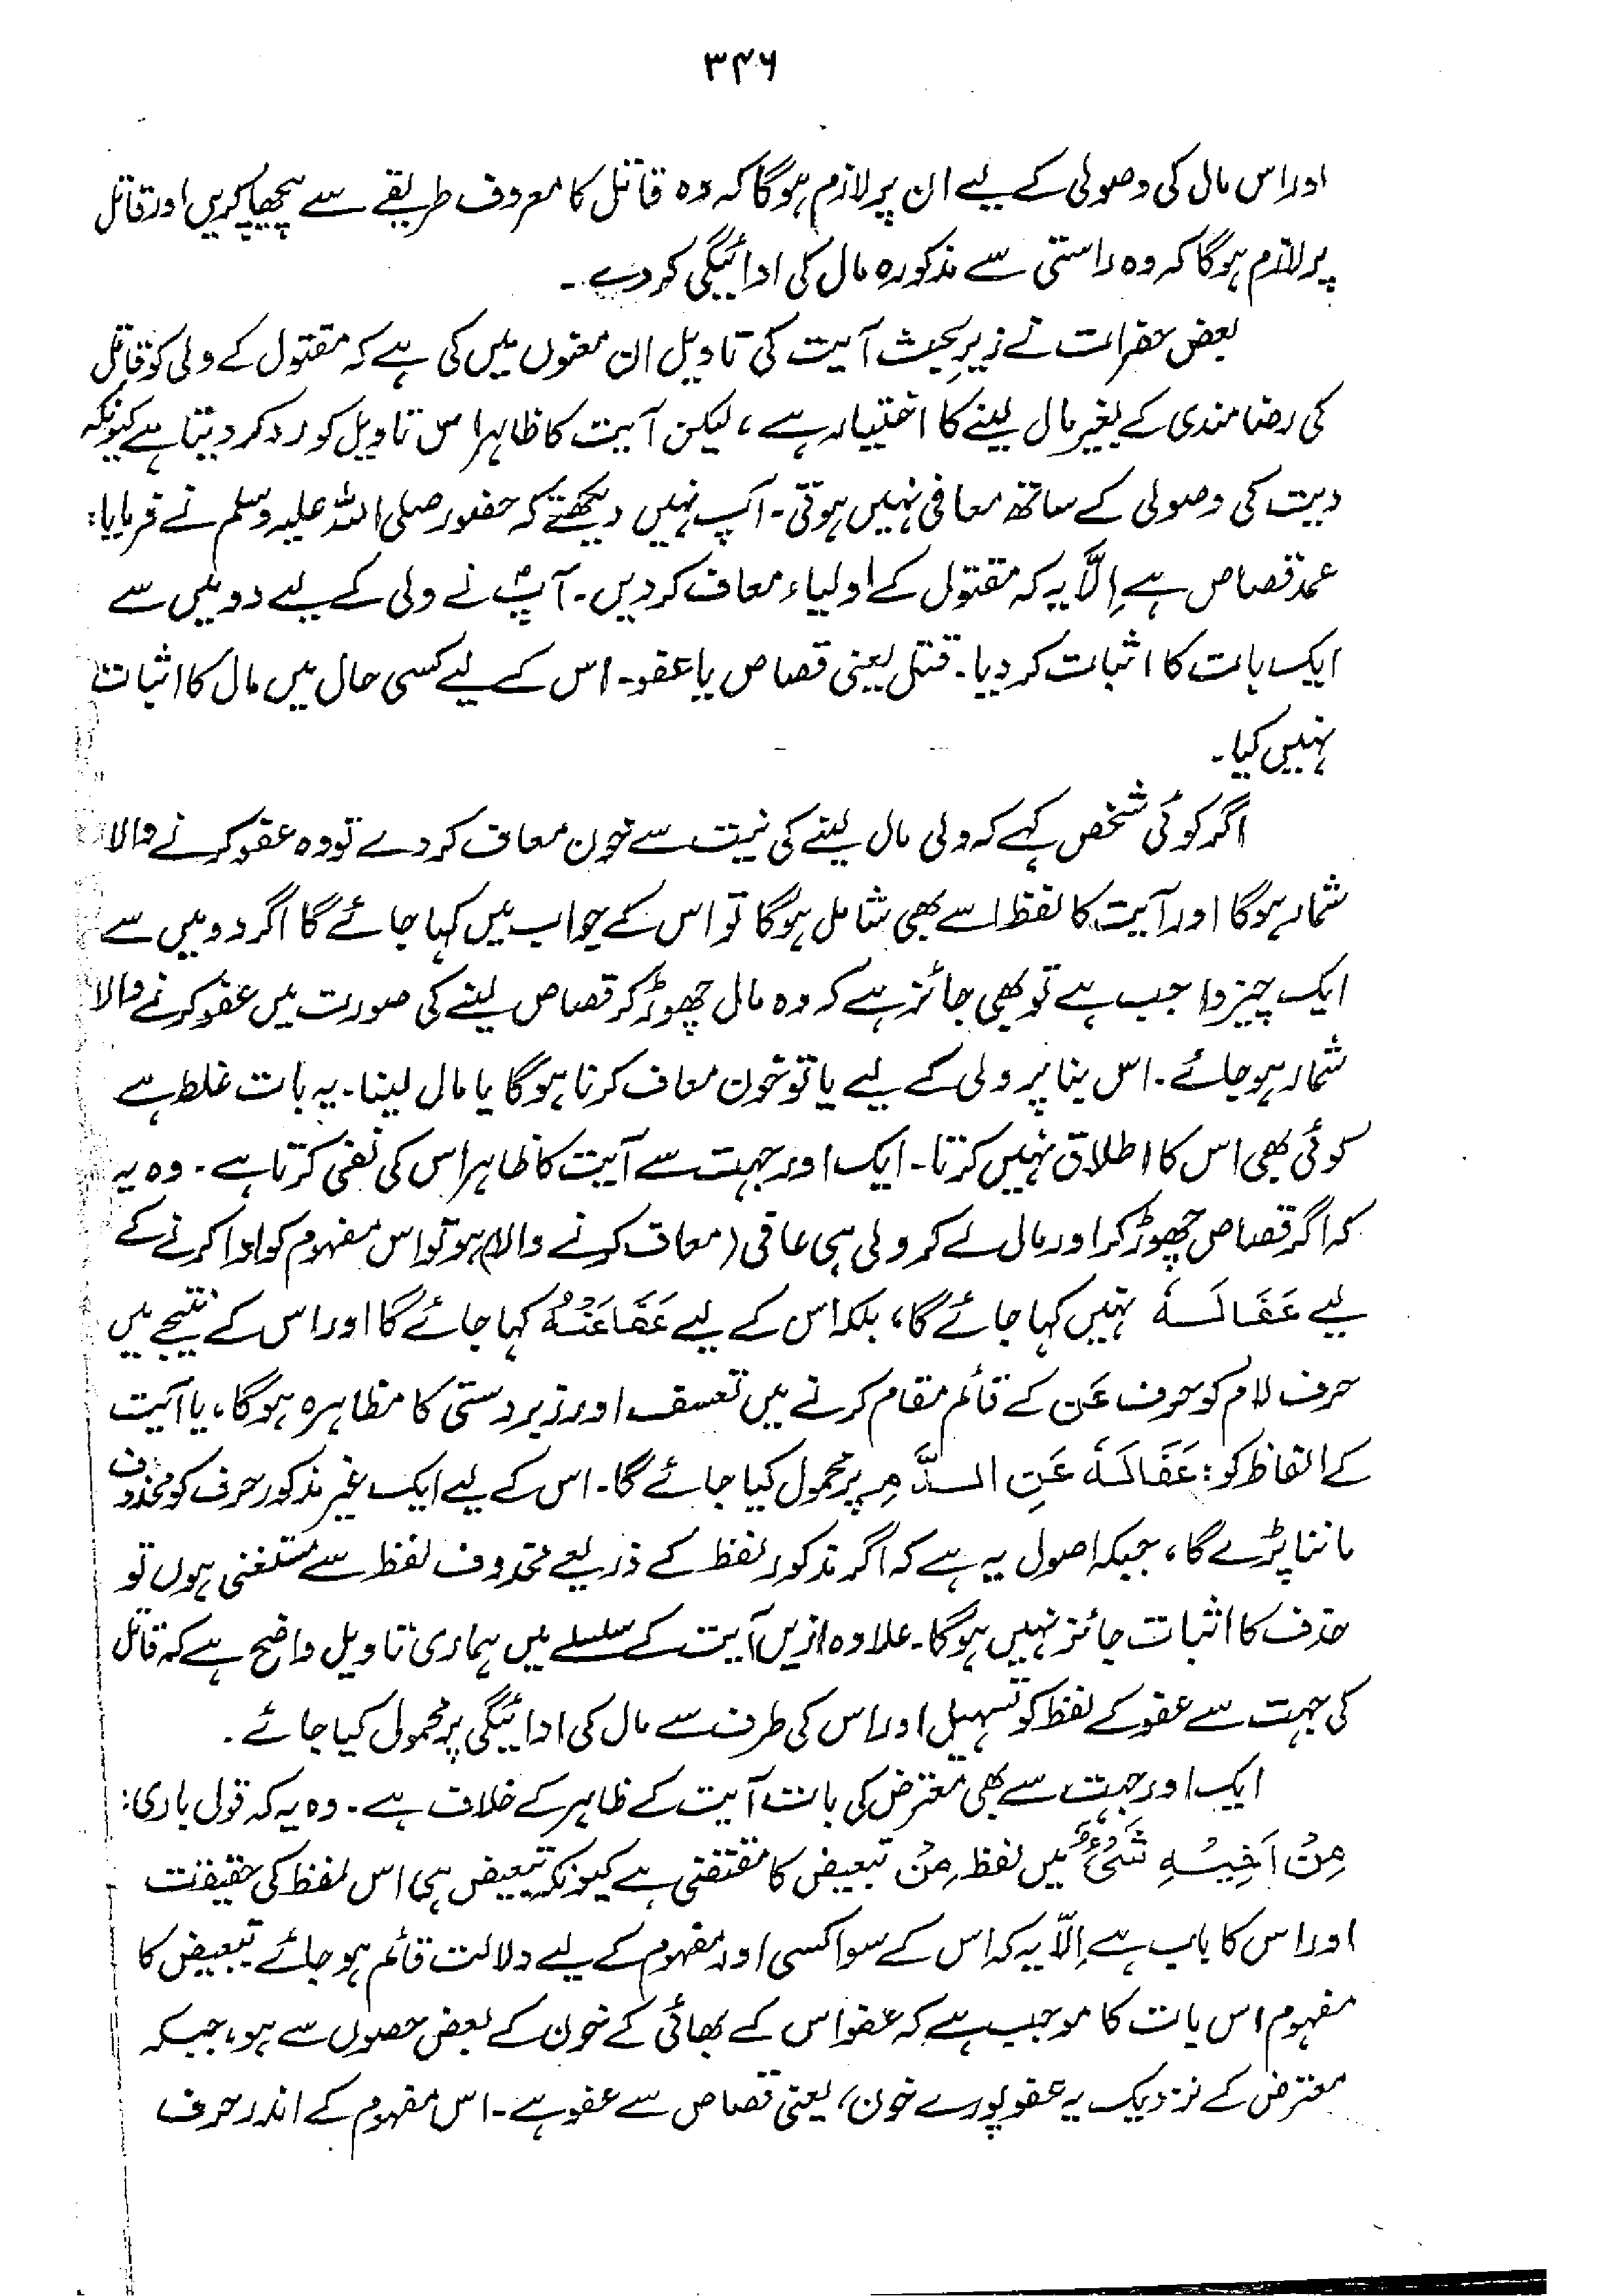 ۳۴۶
اور اس مال کی وصولی کے لیے ان پر لازم ہوگا کہ وہ قاتل کا معروف طریقے سے پیچھا کریں اور قاتل
پر لازم ہوگا کہ وہ راستی سے مذکورہ مال کی ادائیگی کر دے۔
بعض حضرات نے زیرِ بحث آیت کی تاویل ان معنوں میں کی ہے کہ مقتول کے ولی کو قاتل
کی رضامندی کے بغیر مال لینے کا اختیار ہے، لیکن آیت کا ظاہر اس تاویل کو رد کر دیتا ہے کیونکہ
دیت کی وصولی کے ساتھ معافی نہیں ہوتی۔ آپ نہیں دیکھتے کہ حضور صلی اللہ علیہ وسلم نے فرمایا:
عمد قصاص ہے اِلّا یہ کہ مقتول کے اولیاء معاف کر دیں۔ آپؐ نے ولی کے لیے دو میں سے
ایک بات کا اثبات کر دیا۔ قتل یعنی قصاص یا عفو۔ اس کے لیے کسی حال میں مال کا اثبات
نہیں کیا۔
اگر کوئی شخص کہے کہ ولی مال لینے کی نیت سے خون معاف کر دے تو وہ عفو کرنے والا
شمار ہوگا اور آیت کا لفظ اسے بھی شامل ہوگا تو اس کے جواب میں کہا جائے گا اگر دو میں سے
ایک چیز واجب ہے تو بھی جائز ہے کہ وہ مال چھوڑ کر قصاص لینے کی صورت میں عفو کرنے والا
شمار ہو جائے۔ اس بنا پر ولی کے لیے یا تو خون معاف کرنا ہوگا یا مال لینا۔ یہ بات غلط ہے
کوئی بھی اس کا اطلاق نہیں کرتا۔ ایک اور جہت سے آیت کا ظاہر اس کی نفی کرتا ہے۔ وہ یہ
کہ اگر قصاص چھوڑ کر اور مال لے کر ولی ہی عافی (معاف کرنے والا) ہو تو اس مفہوم کو ادا کرنے کے
لیے عَفَا لَہٗ نہیں کہا جائے گا، بلکہ اس کے لیے عَفَا عَنْہُ کہا جائے گا اور اس کے نتیجے میں
حرف لام کو حرف عَن کے قائم مقام کرنے میں تعسف اور زبردستی کا مظاہرہ ہوگا، یا آیت
کے الفاظ کو: عَفَا لَہٗ عَنِ الدَّمِ پر محمول کیا جائے گا۔ اس کے لیے ایک غیر مذکور حرف کو محذوف
ماننا پڑے گا، جبکہ اصول یہ ہے کہ اگر مذکور لفظ کے ذریعے محذوف لفظ سے مستغنی ہوں تو
حذف کا اثبات جائز نہیں ہوگا۔ علاوہ ازیں آیت کے سلسلے میں ہماری تاویل واضح ہے کہ قاتل
کی جہت سے عفو کے لفظ کو تسہیل اور اس کی طرف سے مال کی ادائیگی پر محمول کیا جائے۔
ایک اور جہت سے بھی معترض کی بات آیت کے ظاہر کے خلاف ہے۔ وہ یہ کہ قول باری:
مِنْ اَخِیْہِ شَیْءٌ میں لفظ مِنْ تبعیض کا مقتضی ہے کیونکہ تبعیض ہی اس لفظ کی حقیقت
اور اس کا باب ہے اِلّا یہ کہ اس کے سوا کسی اور مفہوم کے لیے دلالت قائم ہو جائے تبعیض کا
مفہوم اس بات کا موجب ہے کہ عفو اس کے بھائی کے خون کے بعض حصوں سے ہو، جبکہ
معترض کے نزدیک یہ عفو پورے خون، یعنی قصاص سے عفو ہے۔ اس مفہوم کے اندر حرف